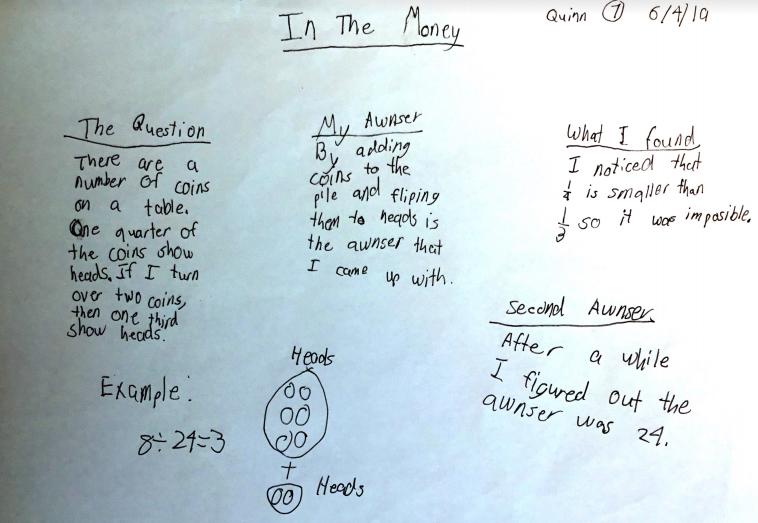 In The Money
Quinn 7 6/4/19
The Question
There are a
number of coins
on a table.
One quarter of
the coins show
heads. If I turn
over two coins,
then one third
show heads.
My Awnser
By adding
coins to the
pile and fliping
them to heads is
the awnser that
I came up with.
What I found
I noticed that
1/4 is smaller than
1/3 so it was imposible.
Second Awnser
After a while
I figured out the
awnser was 24.
Example:
8÷24=3
Heads
+
Heads